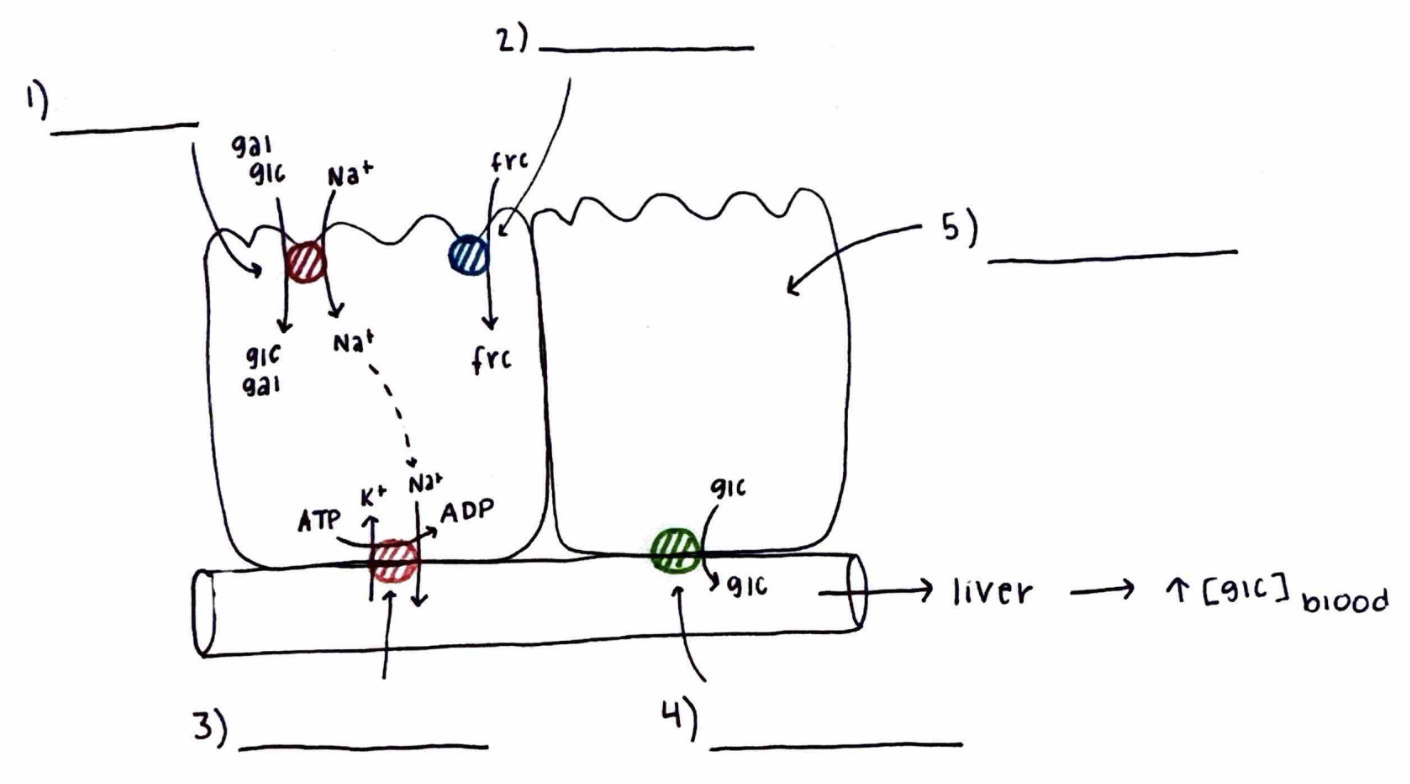 2) ________
1) ________
gal
glc
Na⁺
frc
5) ________
glc
gal
Na⁺
frc
K⁺
Na⁺
ATP
ADP
glc
glc
liver → ↑ [glc] blood
3) ________
4) ________